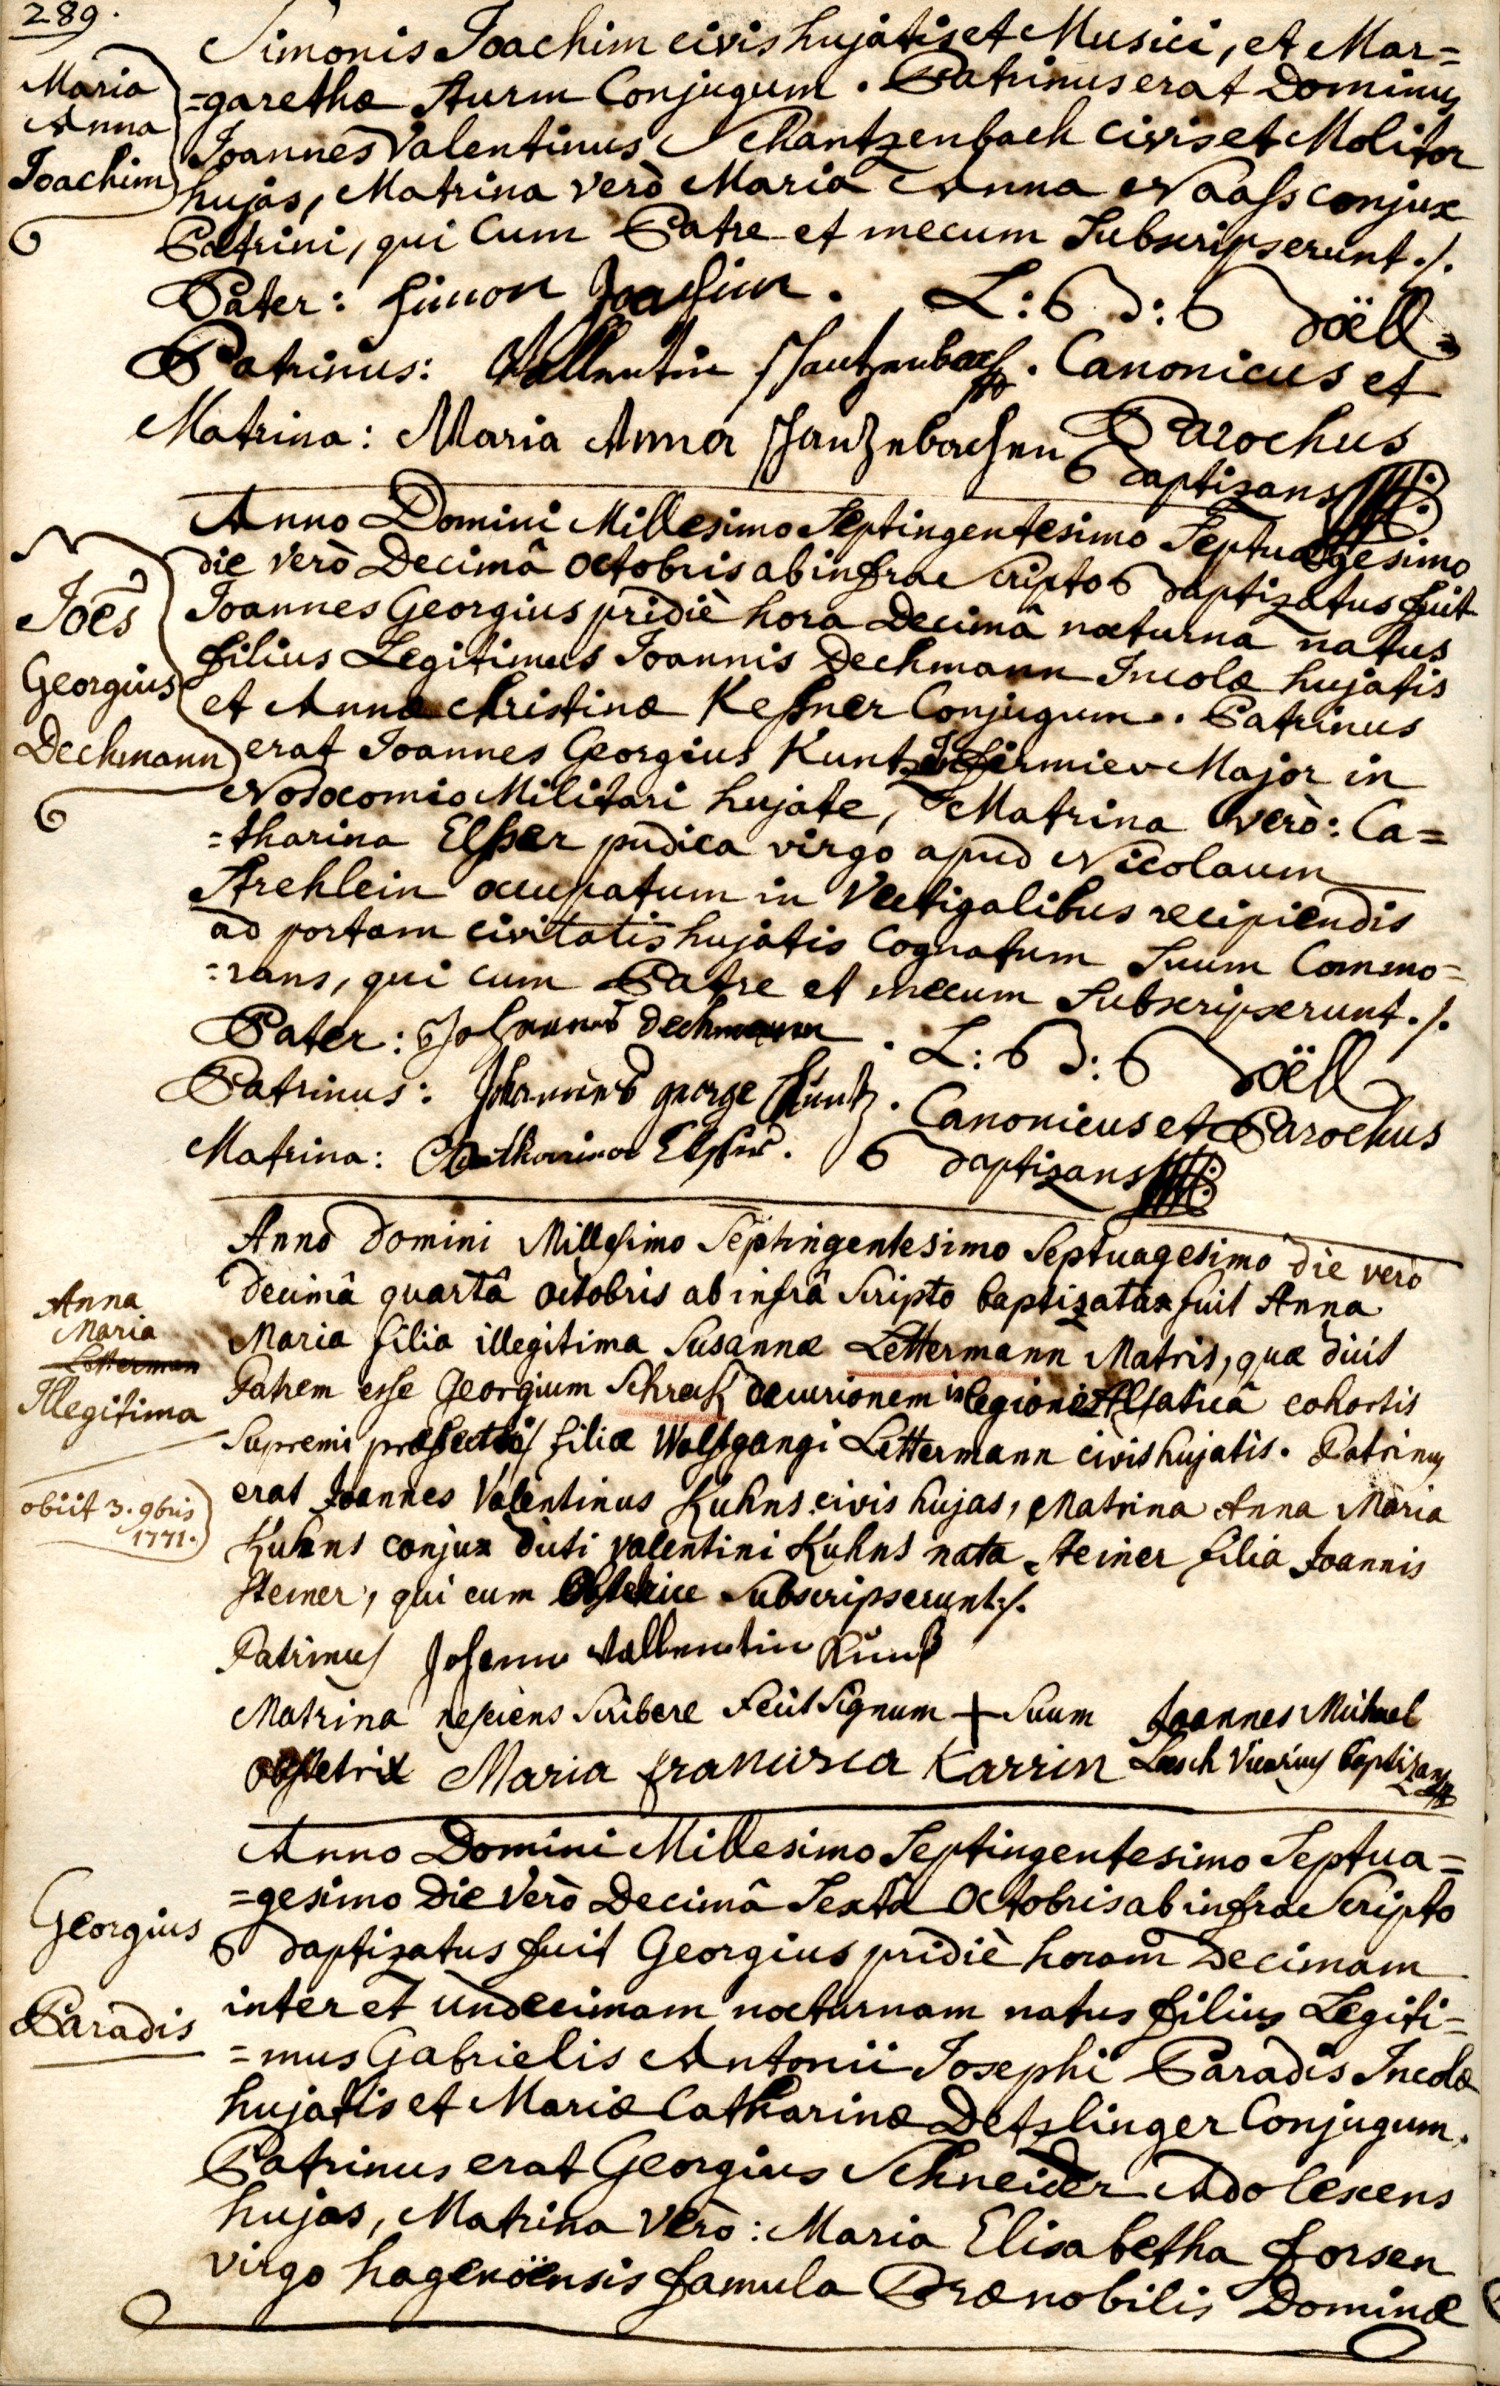 289.
Simonis Joachim civis hujatis et Musici, et Mar=
Maria
Anna
Joachim
=garethæ Sturm Conjugum. Patrinus erat Dominus
Joannes Valentinus Schantzenbach civis et Molitor
hujas, Matrina verò Maria Anna Naass conjux
Patrini, qui cum Patre et mecum Subscripserunt./.
Pater: Simon Joachim. L: B: Doëll
Patrinus: Vallentin Schantzenbach. Canonicus et
Matrina: Maria Anna Schantzenbachen Parochus
Baptizans
Anno Domini Millesimo Septingentesimo Septuagesimo
die verò Decimâ Octobris ab infrae Scripto Baptizatus fuit
Joës
Georgius
Deckmann
Joannes Georgius pridiè hora Decimâ nocturna natus
filius Legitimus Joannis Deckmann Incolæ hujatis
et Annæ Christinæ Kessner Conjugum. Patrinus
erat Joannes Georgius Kuntz Infirmier Major in
Nosocomio Militari hujate, Matrina verò: Ca=
=tharina Elsser pudica virgo apud Nicolaum
Strehlein occupatum in Vectigalibus recipiendis
ad portam civitatis hujatis Cognatum Suum Commo=
=rans, qui cum Patre et mecum Subscripserunt./.
Pater: Johannes Deckmann. L: B: Doëll
Patrinus: Johannes george Kuntz. Canonicus et Parochus
Matrina: Catharina Elsser. Baptizans
Anno Domini Millesimo Septingentesimo Septuagesimo die verò
decimâ quartâ Octobris ab infrâ Scripto baptizata fuit Anna
Anna
Maria
Letterman
Illegitima
Maria filia illegitima Susannæ Lettermann Matris, quæ dicit
Patrem esse Georgium Schreck decurionem in legione Alsaticâ cohortis
Supremi præfecti filiæ Wolfgangi Lettermann civis hujatis. Patrinus
obiit 3. 9bris
1771.
erat Joannes Valentinus Kuhns civis hujas, Matrina Anna Maria
Kuhns conjux dicti Valentini Kuhns nata Steiner filia Joannis
Steiner, qui cum Obstetrice Subscripserunt./.
Patrinus Johann Vallentin
Matrina nesciens Scribere fecit Signum + Suum Joannes Michael
Obstetrix Maria francisca Karrin Lasch Vicarius baptizans
Anno Domini Millesimo Septingentesimo Septua=
=gesimo Die Verò Decimâ Sextâ Octobris ab infrae Scripto
Georgius
Paradis
Baptizatus fuit Georgius pridiè horam Decimam
inter et undecimam nocturnam natus filius Legiti=
=mus Gabrielis Antonii Josephi Paradis Incolæ
hujatis et Mariæ Catharinæ Detzlinger Conjugum.
Patrinus erat Georgius Schneider Adolescens
hujas, Matrina Verò: Maria Elisabetha Forsen
virgo hagenöensis famula Prænobilis Dominæ